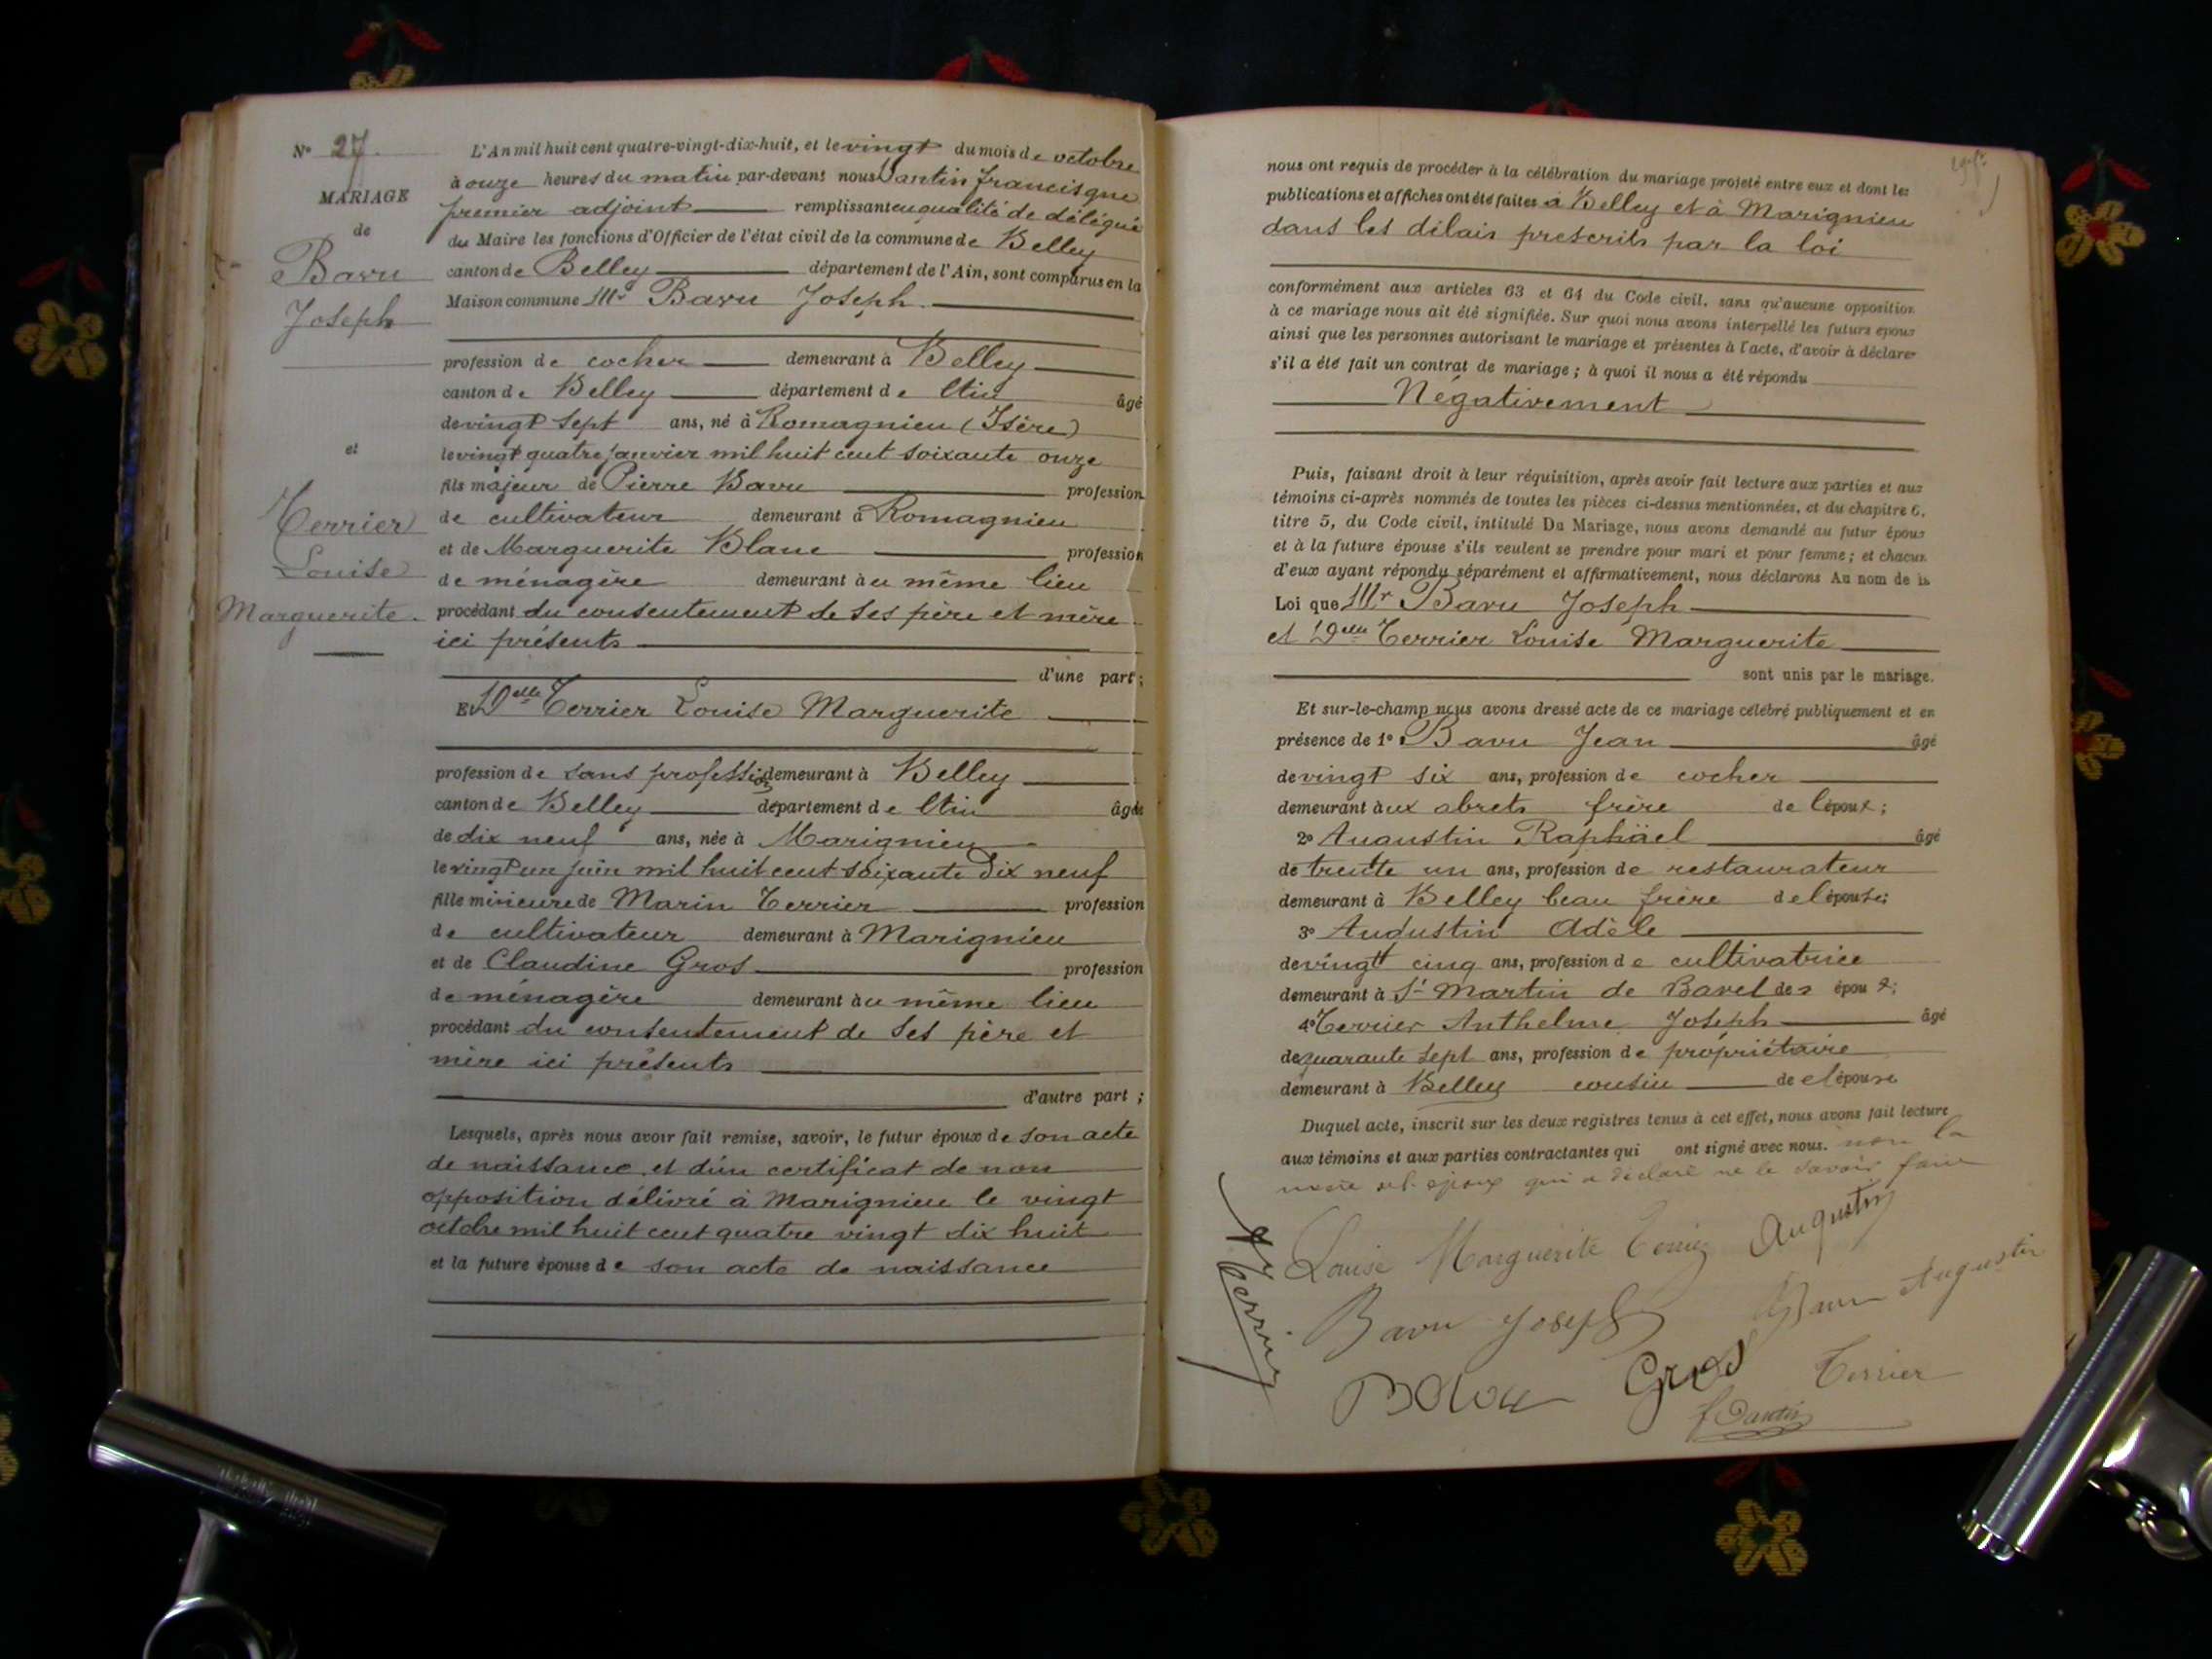 N° 27.
MARIAGE
de
Bavu
Joseph
et
Terrier
Louise
Marguerite.
L'An mil huit cent quatre-vingt-dix-huit, et le vingt du mois de octobre
à onze heures du matin par-devant nous Dantin francisque
premier adjoint remplissant en qualité de délégué
du Maire les fonctions d'Officier de l'état civil de la commune de Belley
canton de Belley département de l'Ain, sont comparus en la
Maison commune Mr Bavu Joseph.
profession de cocher demeurant à Belley
canton de Belley département de l'Ain âgé
de vingt sept ans, né à Romagnieu (Isère)
le vingt quatre janvier mil huit cent soixante onze
fils majeur de Pierre Bavu profession
de cultivateur demeurant à Romagnieu
et de Marguerite Blanc profession
de ménagère demeurant au même lieu
procédant du consentement de ses père et mère
ici présents
d'une part;
Et Delle Terrier Louise Marguerite
profession de sans profession demeurant à Belley
canton de Belley département de l'Ain âgée
de dix neuf ans, née à Marignieu
le vingt un juin mil huit cent soixante dix neuf
fille mineure de Marin Terrier profession
de cultivateur demeurant à Marignieu
et de Claudine Gros profession
de ménagère demeurant au même lieu
procédant du consentement de ses père et
mère ici présents
d'autre part;
Lesquels, après nous avoir fait remise, savoir, le futur époux de son acte
de naissance et d'un certificat de non
opposition délivré à Marignieu le vingt
octobre mil huit cent quatre vingt dix huit
et la future épouse de son acte de naissance
nous ont requis de procéder à la célébration du mariage projeté entre eux et dont les
publications et affiches ont été faites à Belley et à Marignieu
dans les délais prescrits par la loi
conformément aux articles 63 et 64 du Code civil, sans qu'aucune opposition
à ce mariage nous ait été signifiée. Sur quoi nous avons interpellé les futurs époux
ainsi que les personnes autorisant le mariage et présentes à l'acte, d'avoir à déclarer
s'il a été fait un contrat de mariage; à quoi il nous a été répondu
Négativement
Puis, faisant droit à leur réquisition, après avoir fait lecture aux parties et aux
témoins ci-après nommés de toutes les pièces ci-dessus mentionnées, et du chapitre 6,
titre 5, du Code civil, intitulé Du Mariage, nous avons demandé au futur époux
et à la future épouse s'ils veulent se prendre pour mari et pour femme; et chacun
d'eux ayant répondu séparément et affirmativement, nous déclarons Au nom de la
Loi que Mr Bavu Joseph
et Delle Terrier Louise Marguerite
sont unis par le mariage.
Et sur-le-champ nous avons dressé acte de ce mariage célébré publiquement et en
présence de 1° Bavu Jean âgé
de vingt six ans, profession de cocher
demeurant aux abrets frère de l'époux;
2° Auaustin Raphäel âgé
de trente un ans, profession de restaurateur
demeurant à Belley beau frère de l'épouse;
3° Audustin Adèle
de vingt cinq ans, profession de cultivatrice
demeurant à St Martin de Bavel des époux;
4° Terrier Anthelme Joseph âgé
de quarante sept ans, profession de propriétaire
demeurant à Belley cousin de l'épouse
Duquel acte, inscrit sur les deux registres tenus à cet effet, nous avons fait lecture
aux témoins et aux parties contractantes qui ont signé avec nous. non la
qui a déclaré ne le savoir faire
Louise Marguerite Terrier Augustin
Bavu Joseph Bavu Augustin
Bavu Gros Terrier
f Dantin
Terrier